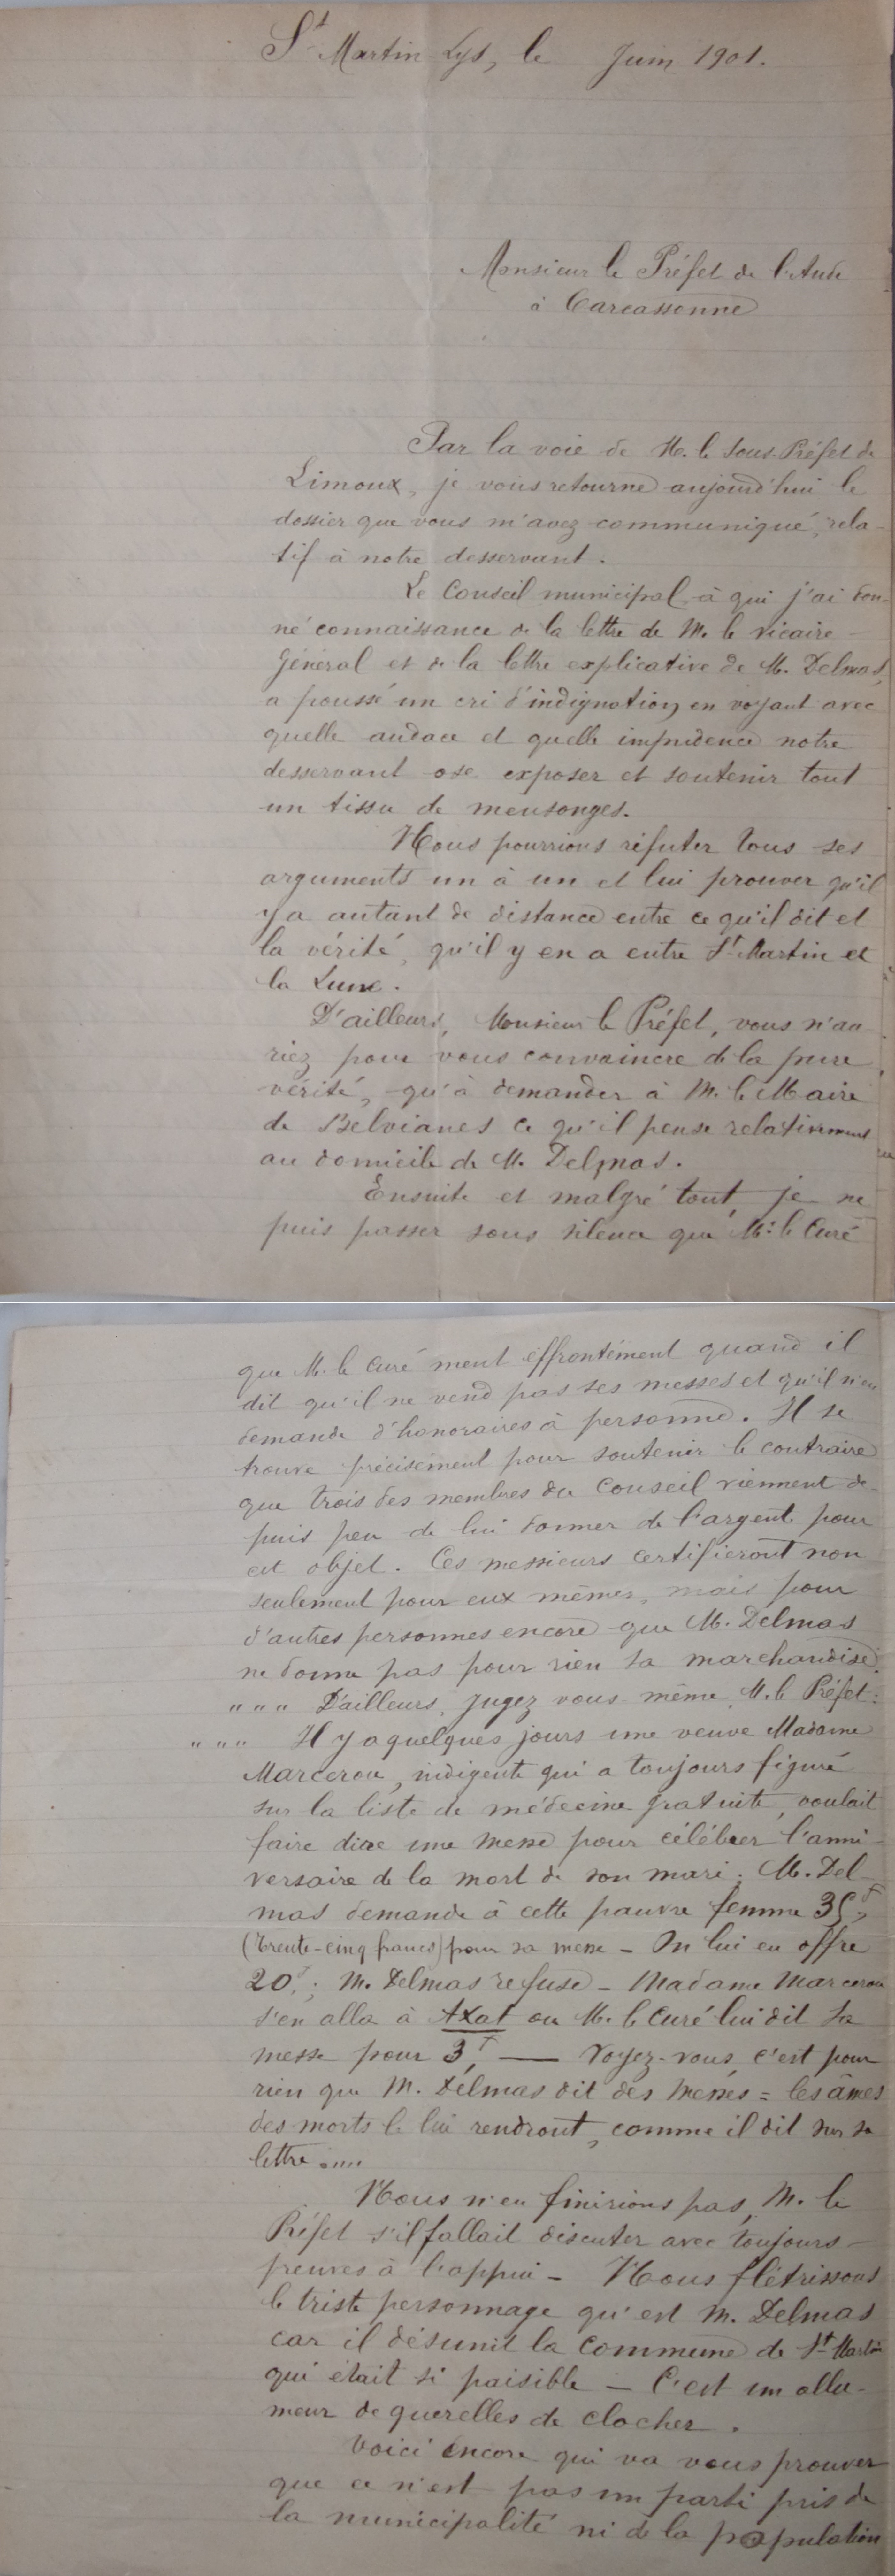 St Martin Lys, le Juin 1901.
Monsieur le Préfet de l'Aude
à Carcassonne
Par la voie de M. le Sous-Préfet de
Limoux, je vous retourne aujourd'hui le
dossier que vous m'avez communiqué, rela-
tif à notre desservant.
Le Conseil municipal à qui j'ai don-
né connaissance de la lettre de M. le vicaire
Général et de la lettre explicative de M. Delmas,
a poussé un cri d'indignation en voyant avec
quelle audace et quelle impudence notre
desservant ose exposer et soutenir tout
un tissu de mensonges.
Nous pourrions réfuter tous ses
arguments un à un et lui prouver qu'il
y a autant de distance entre ce qu'il dit et
la vérité, qu'il y en a entre St Martin et
la Lune.
D'ailleurs, Monsieur le Préfet, vous n'au
riez pour vous convaincre de la pure
vérité, qu'à demander à M. le Maire
de Belvianes ce qu'il pense relativement
au domicile de M. Delmas.
Ensuite et malgré tout, je ne
puis passer sous silence que M. le Curé
que M. le Curé ment effrontément quand il
dit qu'il ne vend pas ses messes et qu'il n'en
demande d'honoraires à personne. Il se
trouve précisément pour soutenir le contraire
que trois des membres du Conseil viennent de-
puis peu de lui donner de l'argent pour
cet objet. Ces messieurs certifieront non
seulement pour eux mêmes, mais pour
d'autres personnes encore que M. Delmas
ne donne pas pour rien sa marchandise.
" " " D'ailleurs, Jugez vous même, M. le Préfet:
" " " Il y a quelques jours une veuve Madame
Marcerou, indigente qui a toujours figuré
sur la liste de médecine gratuite, voulait
faire dire une messe pour célébrer l'anni-
versaire de la mort de son mari; M. Del-
mas demande à cette pauvre femme 35f,
(trente-cinq francs) pour sa messe - On lui en offre
20f; M. Delmas refuse - Madame Marcerou
s'en alla à Axat ou M. le Curé lui dit sa
messe pour 3f, — Voyez-vous, c'est pour
rien que M. Délmas dit des messes = les âmes
des morts le lui rendront, comme il dit sur sa
lettre ....
Nous n'en finirions pas, M. le
Préfet s'il fallait discuter avec toujours
preuves à l'appui - Nous flétrissons
le triste personnage qu'est M. Delmas
car il désunit la commune de St-Martin
qui était si paisible - C'est un allu-
meur de querelles de clocher.
Voici encore qui va vous prouver
que ce n'est pas un parti pris de
la municipalité ni de la population